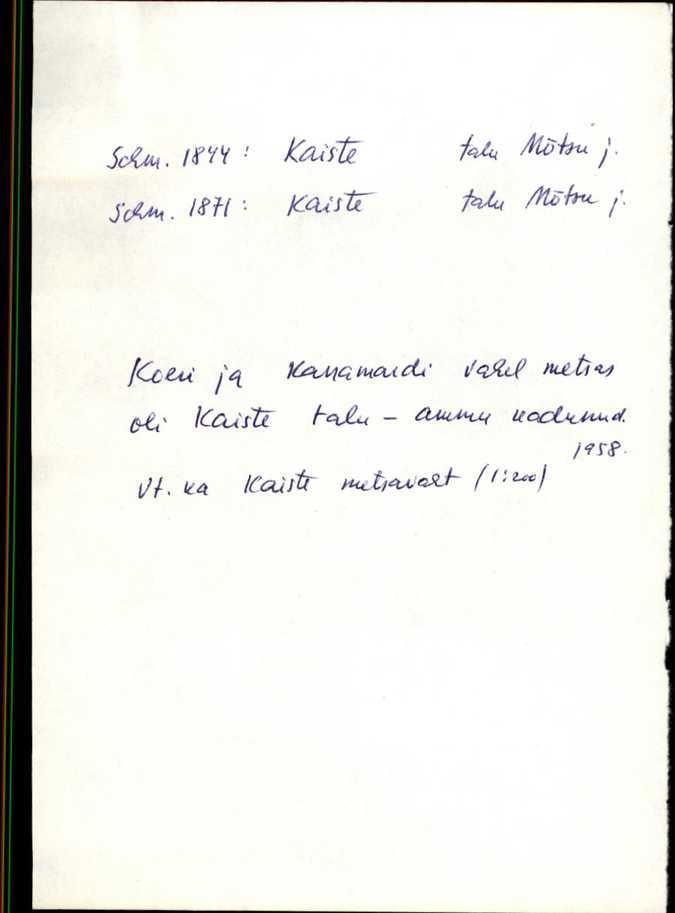 Schm. 1844: Kaiste talu Mõtsu j.
Schm. 1871: Kaiste talu Mõtsu j.
Koeri ja Kanamardi vahel metsas
oli Kaiste talu – ammu kadunud.
1958.
Vt. ka Kaiste metsavaht (1:200)